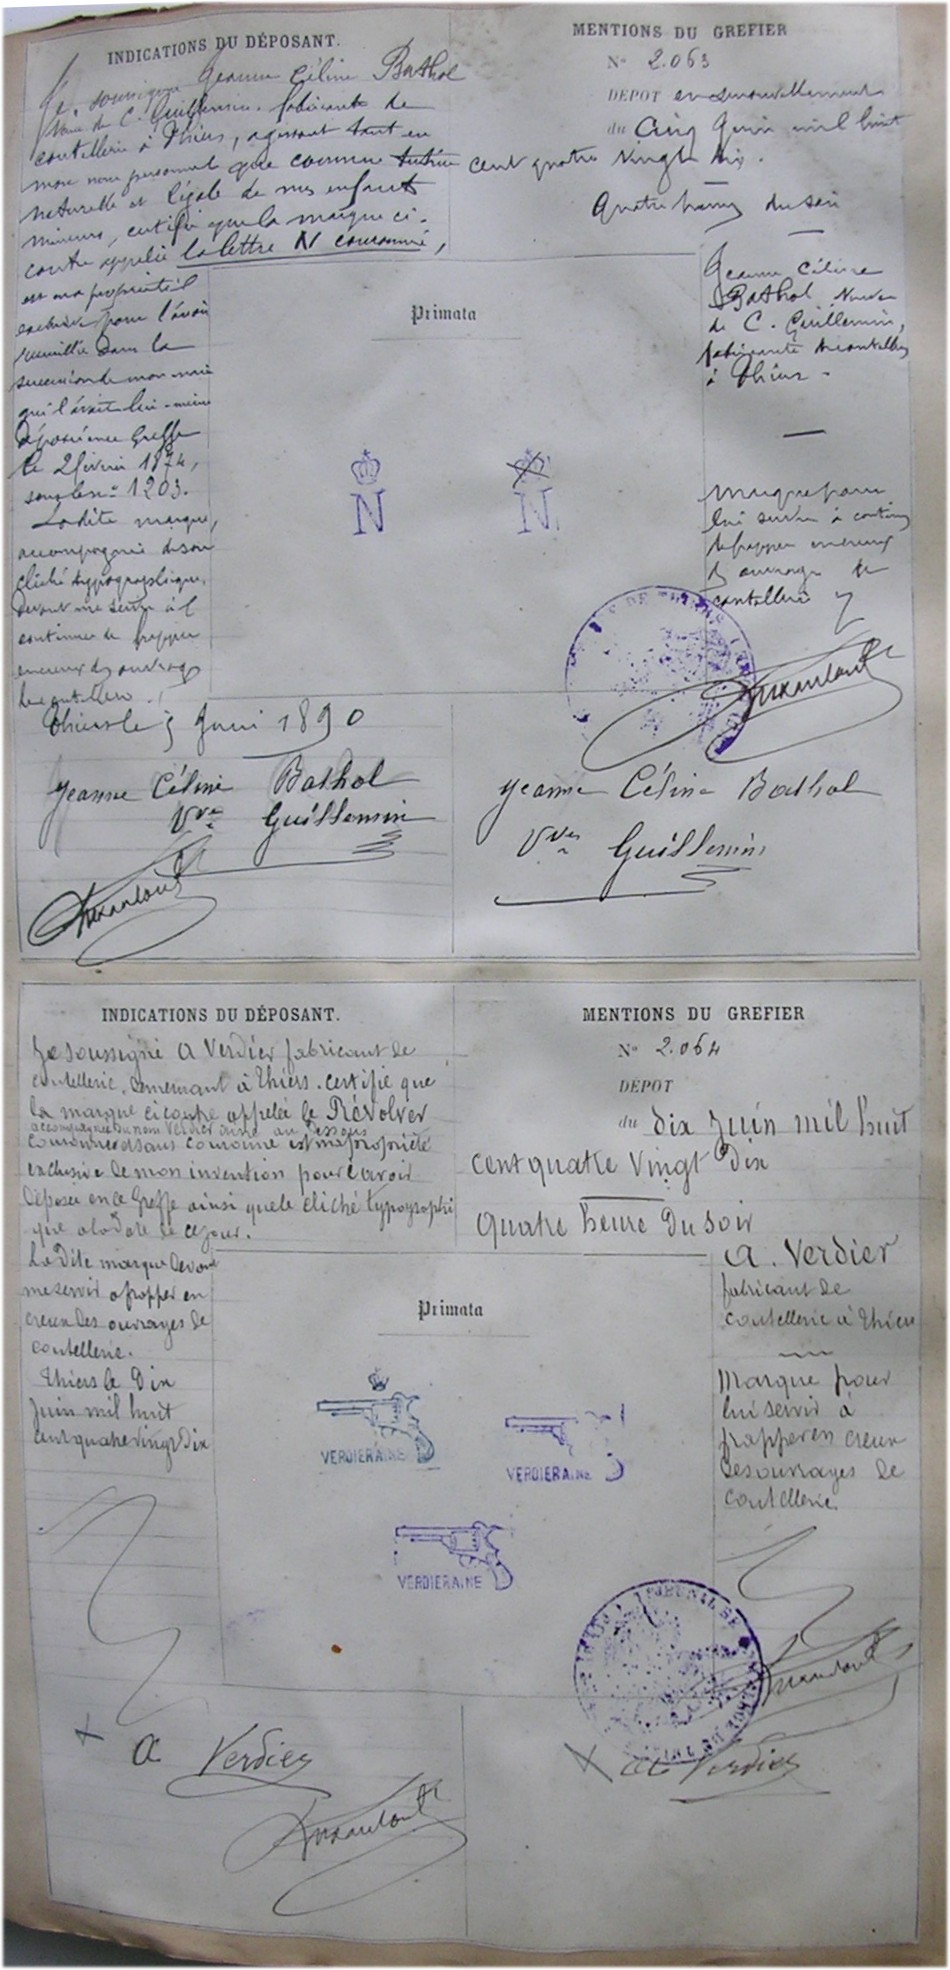 INDICATIONS DU DÉPOSANT.
Je, soussignée Jeanne Céline Bathol
Veuve de C. Guillemin, fabricante de
coutellerie à Thiers, agissant tant en
mon nom personnel que comme tutrice
naturelle et légale de mes enfants
mineurs, certifie que la marque ci-
contre appelée la lettre N couronné,
est ma propriété
exclusive pour l'avoir
recueillie dans la
succession de mon mari
qui l'avait lui-même
déposée au Greffe
le 2 février 1874,
sous le n° 1203.
Ladite marque,
accompagnée de son
cliché typographique,
devant me servir à
continuer de frapper
en creux des ouvrages
de coutellerie
Thiers le 5 Juin 1890
Jeanne Céline Bathol
Vve Guillemin
MENTIONS DU GREFIER
No 2.063
DÉPOT en renouvellement
du Cinq Juin mil huit
cent quatre vingt dix.
Quatre heures du soir
Jeanne Céline
Bathol Veuve
de C. Guillemin,
fabricante de coutellerie
à Thiers -
Primata
N
N
Marque pour
lui servir à continuer
de frapper en creux
des ouvrages de
coutellerie
Jeanne Céline Bathol
Vve Guillemin
INDICATIONS DU DÉPOSANT.
Je soussigné A Verdier fabricant de
coutellerie, demeurant à Thiers. certifie que
la marque ci contre appelée le Révolver
accompagnée du nom Verdier ainé au dessous
couronné et sans couronne est ma propriété
exclusive de mon invention pour l'avoir
déposée en ce Greffe ainsi que le cliché typographi
que a la date de ce jour.
La Dite marque devant
me servir a frapper en
creux des ouvrages de
coutellerie.
Thiers le Dix
Juin mil huit
cent quatre vingt Dix
MENTIONS DU GREFIER
No 2.064
DÉPOT
du dix Juin mil huit
cent quatre vingt Dix
Quatre heure Du soir
A. Verdier
fabricant de
coutellerie à Thiers
Primata
VERDIERAINE
VERDIERAINE
VERDIERAINE
Marque pour
lui servir à
frapper en creux
des ouvrages de
coutellerie.
A Verdier
A Verdier